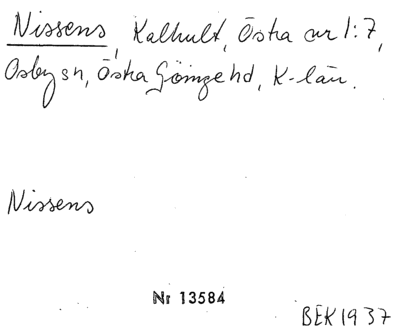 Nissens, Kalhult, Östra nr 1:7,
Osby sn, Östra Göinge hd, K-län.
Nissens
Nr 13584
BEK 1937